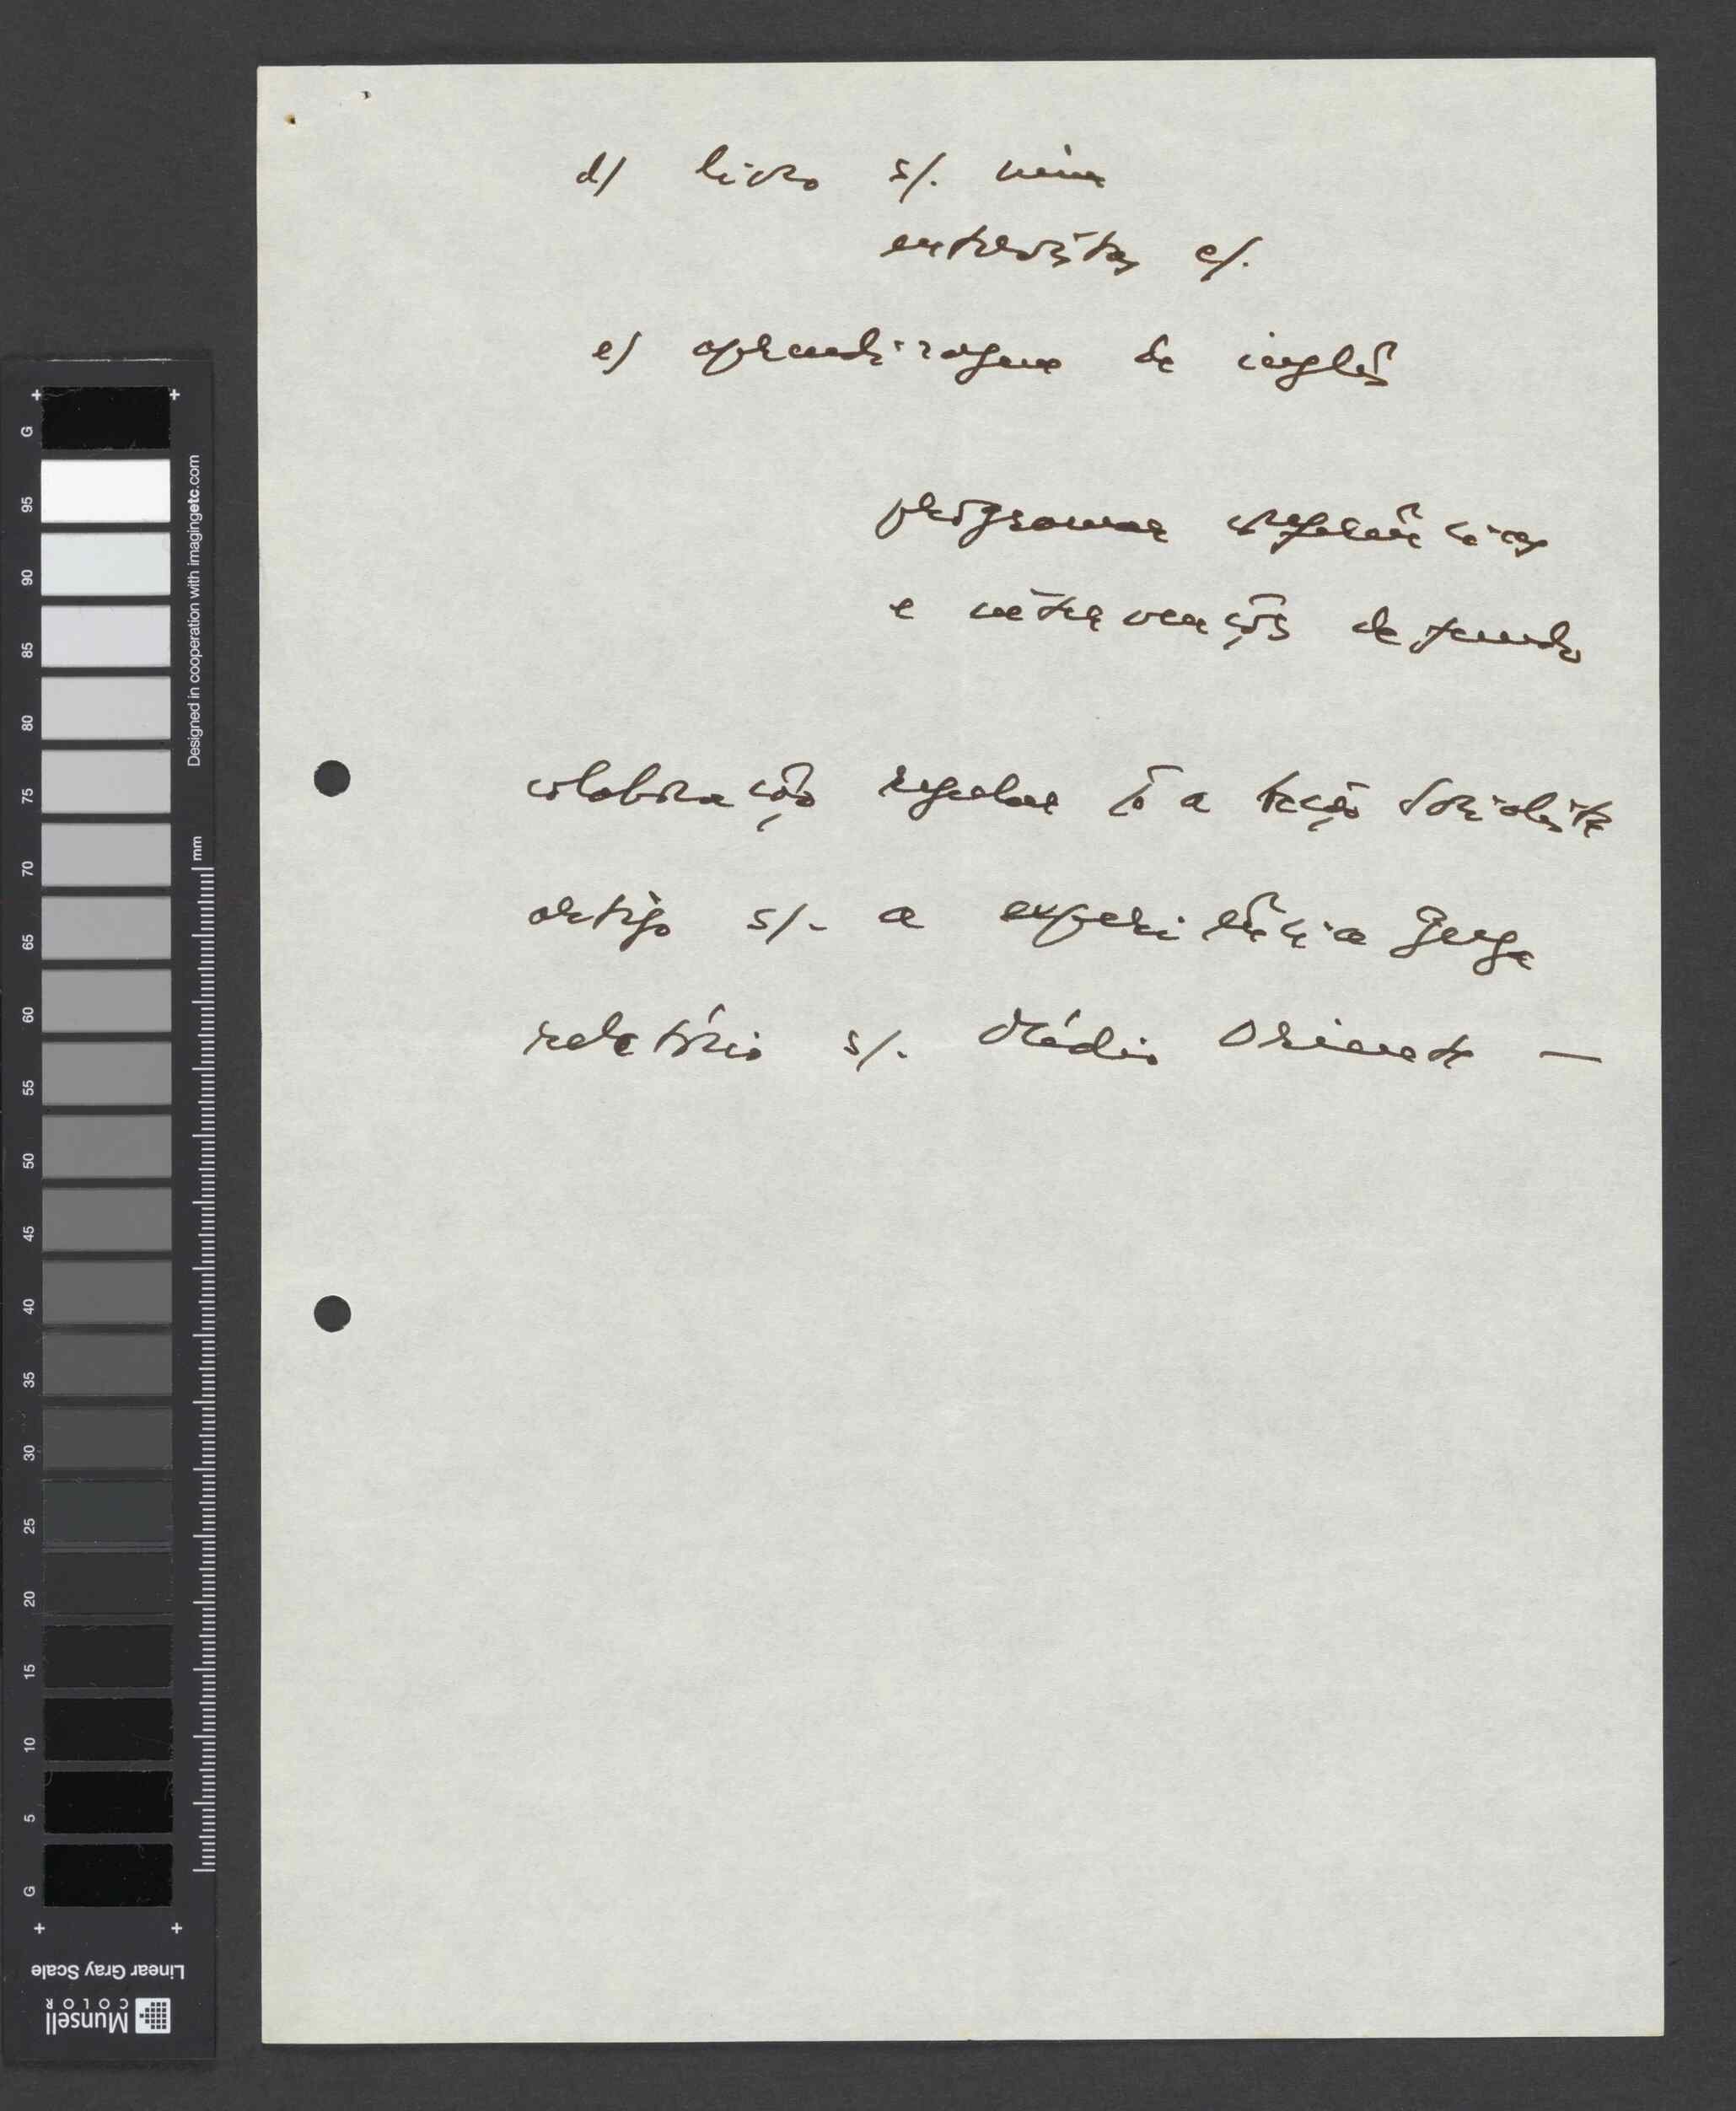 d) livro s/. mim
entrevistas c/.
e) aprendizagem de inglês
programar conferências
e intervenções de fundo
colaboração regular p a Acção Socialista
artigo s/. a experiência grega
relatório s/. Médio Oriente —
G
95
90
85
80
75
70
65
60
55
50
45
40
35
30
25
20
15
10
5
G
Designed in cooperation with imagingetc.com
mm
Linear Gray Scale
Munsell
COLOR